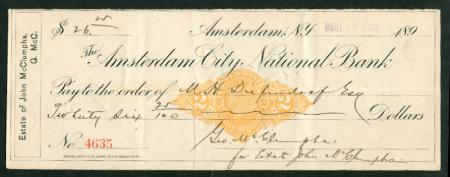 $ 26 25
Amsterdam, N.Y. 189
The Amsterdam City National Bank
Pay to the order of M. H. Esq
Twenty Six 25/100 Dollars
No. 4635
Geo. McClumpha
for Estate John McClumpha
Estate of John McClumpha.
G. McC.